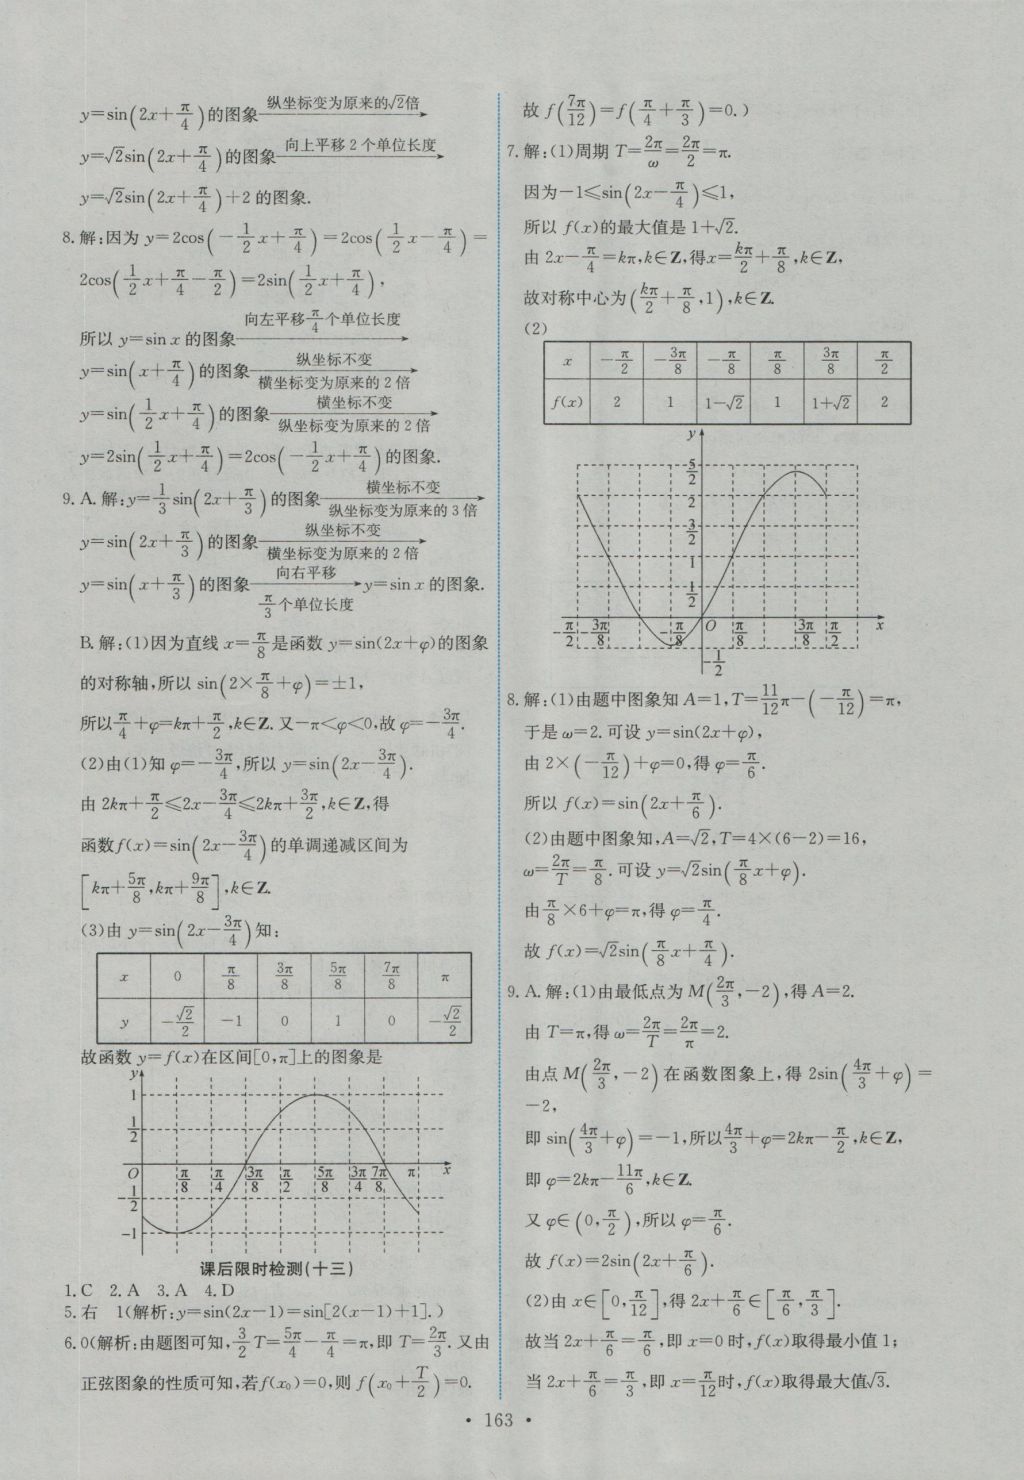 y=sin(2x+π/4)的图象 纵坐标变为原来的√2倍→
y=√2sin(2x+π/4)的图象 向上平移2个单位长度→
y=√2sin(2x+π/4)+2的图象.
8.解:因为y=2cos(-1/2x+π/4)=2cos(1/2x-π/4)=
2cos(1/2x+π/4-π/2)=2sin(1/2x+π/4),
所以y=sin x的图象 向左平移π/4个单位长度→
y=sin(x+π/4)的图象 纵坐标不变/横坐标变为原来的2倍→
y=sin(1/2x+π/4)的图象 横坐标不变/纵坐标变为原来的2倍→
y=2sin(1/2x+π/4)=2cos(-1/2x+π/4)的图象.
9.A.解:y=1/3sin(2x+π/3)的图象 横坐标不变/纵坐标变为原来的3倍→
y=sin(2x+π/3)的图象 纵坐标不变/横坐标变为原来的2倍→
y=sin(x+π/3)的图象 向右平移/π/3个单位长度→y=sin x的图象.
B.解:(1)因为直线x=π/8是函数y=sin(2x+φ)的图象
的对称轴,所以sin(2×π/8+φ)=±1,
所以π/4+φ=kπ+π/2,k∈Z.又-π<φ<0,故φ=-3π/4.
(2)由(1)知φ=-3π/4,所以y=sin(2x-3π/4).
由2kπ+π/2≤2x-3π/4≤2kπ+3π/2,k∈Z,得
函数f(x)=sin(2x-3π/4)的单调递减区间为
[kπ+5π/8,kπ+9π/8],k∈Z.
(3)由y=sin(2x-3π/4)知:
x 0 π/8 3π/8 5π/8 7π/8 π
y -√2/2 -1 0 1 0 -√2/2
故函数y=f(x)在区间[0,π]上的图象是
y
1
1/2
O π/8 π/4 3π/8 π/2 5π/8 3π/4 7π/8 π x
-1/2
-1
课后限时检测(十三)
1.C 2.A 3.A 4.D
5.右 1(解析:y=sin(2x-1)=sin[2(x-1)+1].)
6.0(解析:由题图可知,3/2T=5π/4-π/4=π,即T=2π/3.又由
正弦图象的性质可知,若f(x₀)=0,则f(x₀+T/2)=0.
故f(7π/12)=f(π/4+π/3)=0.)
7.解:(1)周期T=2π/ω=2π/2=π.
因为-1≤sin(2x-π/4)≤1,
所以f(x)的最大值是1+√2.
由2x-π/4=kπ,k∈Z,得x=kπ/2+π/8,k∈Z,
故对称中心为(kπ/2+π/8,1),k∈Z.
(2)
x -π/2 -3π/8 -π/8 π/8 3π/8 π/2
f(x) 2 1 1-√2 1 1+√2 2
y
5/2
2
3/2
1
1/2
-π/2 -3π/8 -π/8 O π/8 3π/8 π/2 x
-1/2
8.解:(1)由题中图象知A=1,T=11/12π-(-π/12)=π,
于是ω=2.可设y=sin(2x+φ),
由2×(-π/12)+φ=0,得φ=π/6.
所以f(x)=sin(2x+π/6).
(2)由题中图象知,A=√2,T=4×(6-2)=16,
ω=2π/T=π/8.可设y=√2sin(π/8x+φ).
由π/8×6+φ=π,得φ=π/4.
故f(x)=√2sin(π/8x+π/4).
9.A.解:(1)由最低点为M(2π/3,-2),得A=2.
由T=π,得ω=2π/T=2π/π=2.
由点M(2π/3,-2)在函数图象上,得2sin(4π/3+φ)=
-2,
即sin(4π/3+φ)=-1,所以4π/3+φ=2kπ-π/2,k∈Z,
即φ=2kπ-11π/6,k∈Z.
又φ∈(0,π/2),所以φ=π/6.
故f(x)=2sin(2x+π/6).
(2)由x∈[0,π/12],得2x+π/6∈[π/6,π/3].
故当2x+π/6=π/6,即x=0时,f(x)取得最小值1;
当2x+π/6=π/3,即x=π/12时,f(x)取得最大值√3.
• 163 •